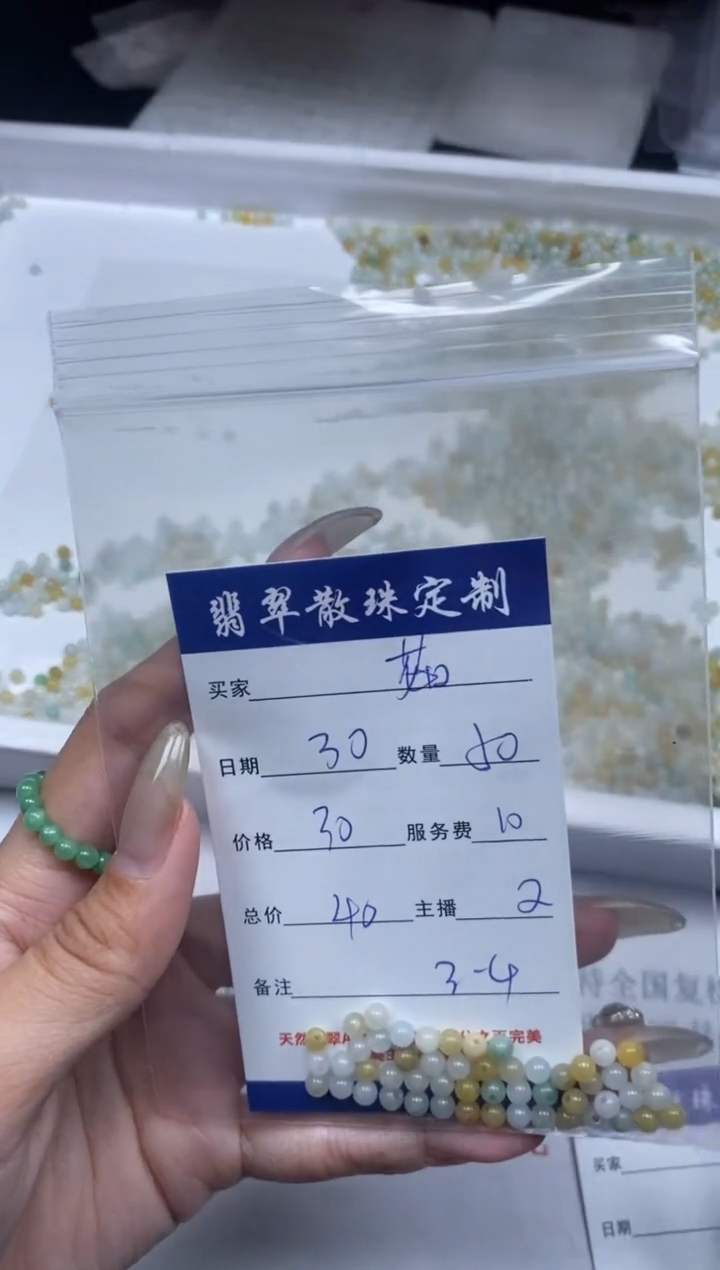 翡翠散珠定制
买家
日期 30 数量
价格 30 服务费 10
总价 40 主播 2
备注 3-4
天然翡翠A 完美
待全国复检
买家
日期